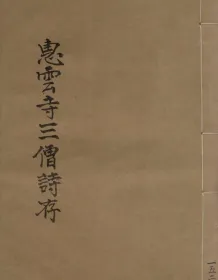 惠雲寺三僧詩存